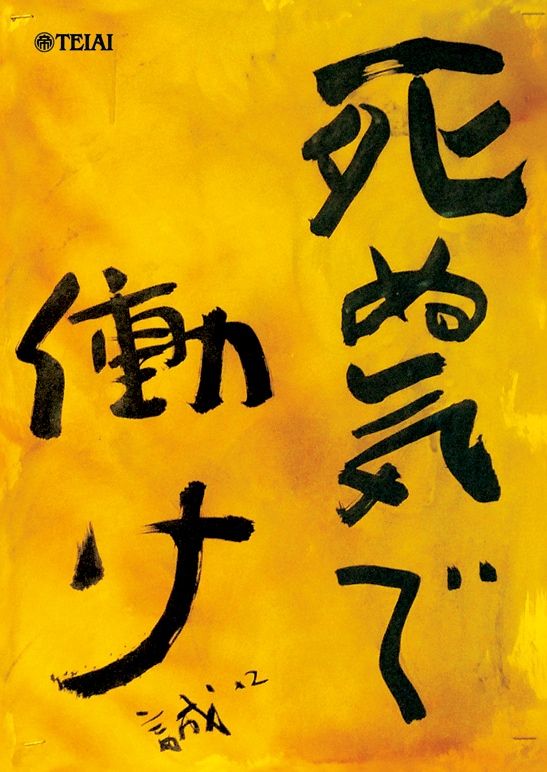 帝TEIAI
死ぬ気で
働け
誠x2